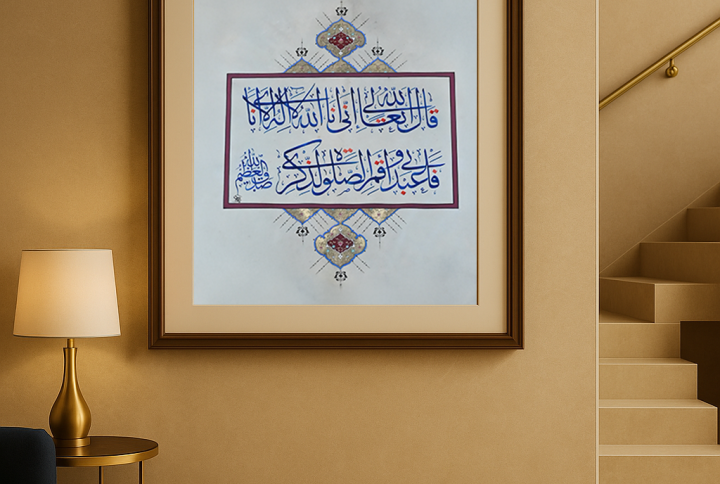 قال الله تعالى إنني أنا الله لا إله إلا أنا
فاعبدني وأقم الصلوة لذكري
صدق الله العظيم